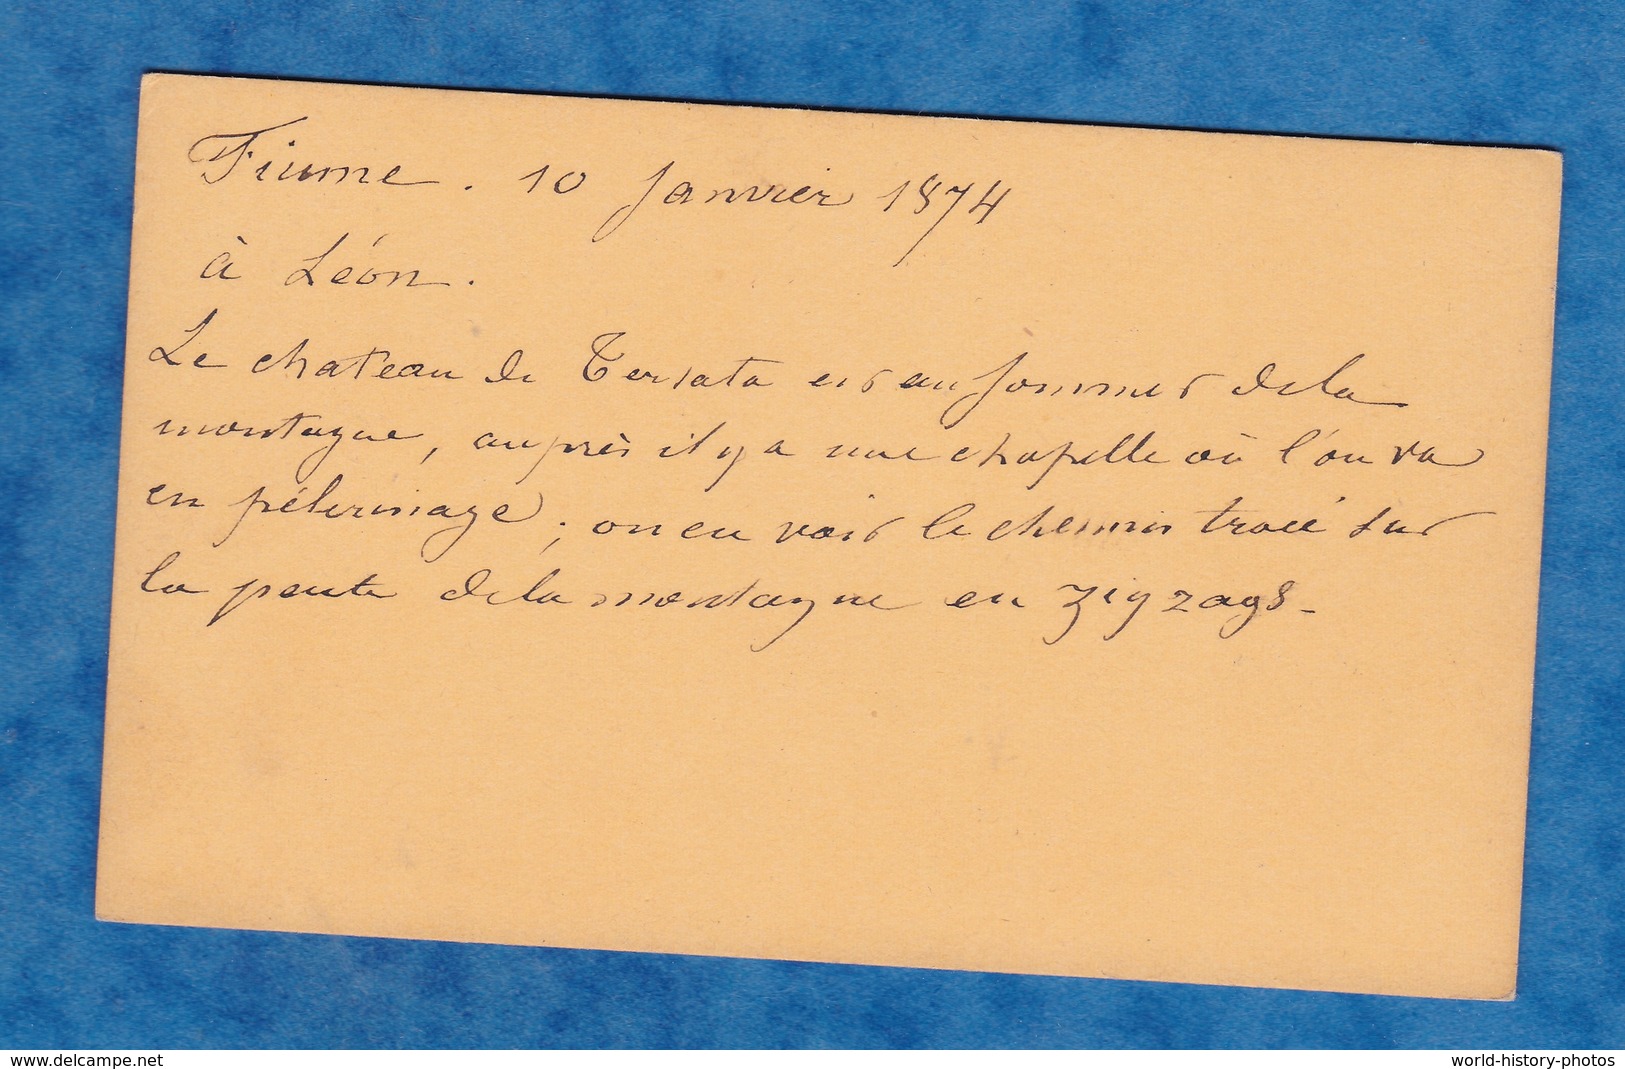 Fiume. 10 Janvier 1874
à Léon.
Le chateau de Tersata est au sommet de la
montagne, auprès il y a une chapelle où l'on va
en pélerinage; on en voit le chemin tracé sur
la pente de la montagne en zigzags.
www.delcampe.net
world-history-photos